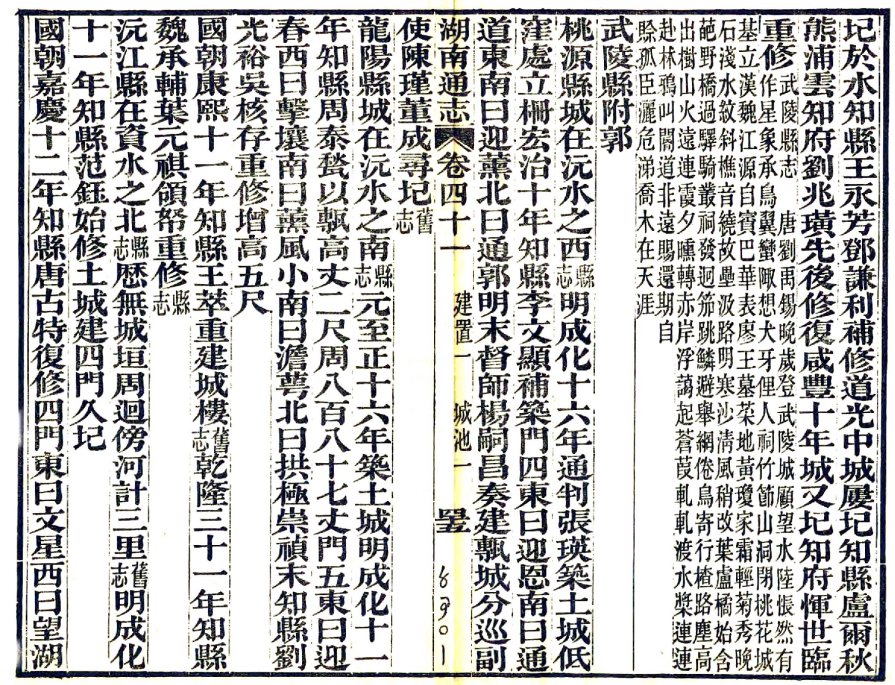 圮於水知縣王永芳鄧謙利補修道光中城屢圮知縣盧爾秋
熊浦雲知府劉兆璜先後修復咸豐十年城又圮知府惲世臨
重修武陵縣志 唐劉禹錫晚歲登武陵城顧望水陸悵然有
作星象承鳥翼蠻陬想犬牙俚人祠竹節山洞閉桃花城
基立漢魏江源自賓巴華表廖王墓菜地黃瓊家霜輕菊秀晚
石淺水紋斜樵音繞故壘汲路明寒沙清風稍改葉盧橘始含
葩野橋過驛騎叢祠發迥笳跳鱗避舉網倦鳥寄行楂路塵高
出樹山火遠連霞夕曛轉赤岸浮靄起蒼葭軋軋渡水槳連連
赴林鴉叫閽道非遠賜還期自
賒孤臣灑危涕喬木在天涯
武陵縣附郭
桃源縣城在沅水之西縣志明成化十六年通判張瑛築土城低
窪處立柵宏治十年知縣李文顯補築門四東曰迎恩南曰通
道東南曰迎薰北曰通郭明末督師楊嗣昌奏建甎城分巡副
使陳瑾董成尋圮舊志
湖南通志 卷四十一 建置一 城池一
6901
龍陽縣城在沅水之南縣志元至正十六年築土城明成化十一
年知縣周泰甃以甎高丈二尺周八百八十七丈門五東曰迎
春西曰擊壤南曰薰風小南曰澹蕚北曰拱極崇禎末知縣劉
光裕吳核存重修增高五尺
國朝康熙十一年知縣王萃重建城樓舊志乾隆三十一年知縣
魏承輔葉元祺領帑重修縣志
沅江縣在資水之北縣志歷無城垣周迴傍河計三里舊志明成化
十一年知縣范鈺始修土城建四門久圮
國朝嘉慶十二年知縣唐古特復修四門東曰文星西曰望湖